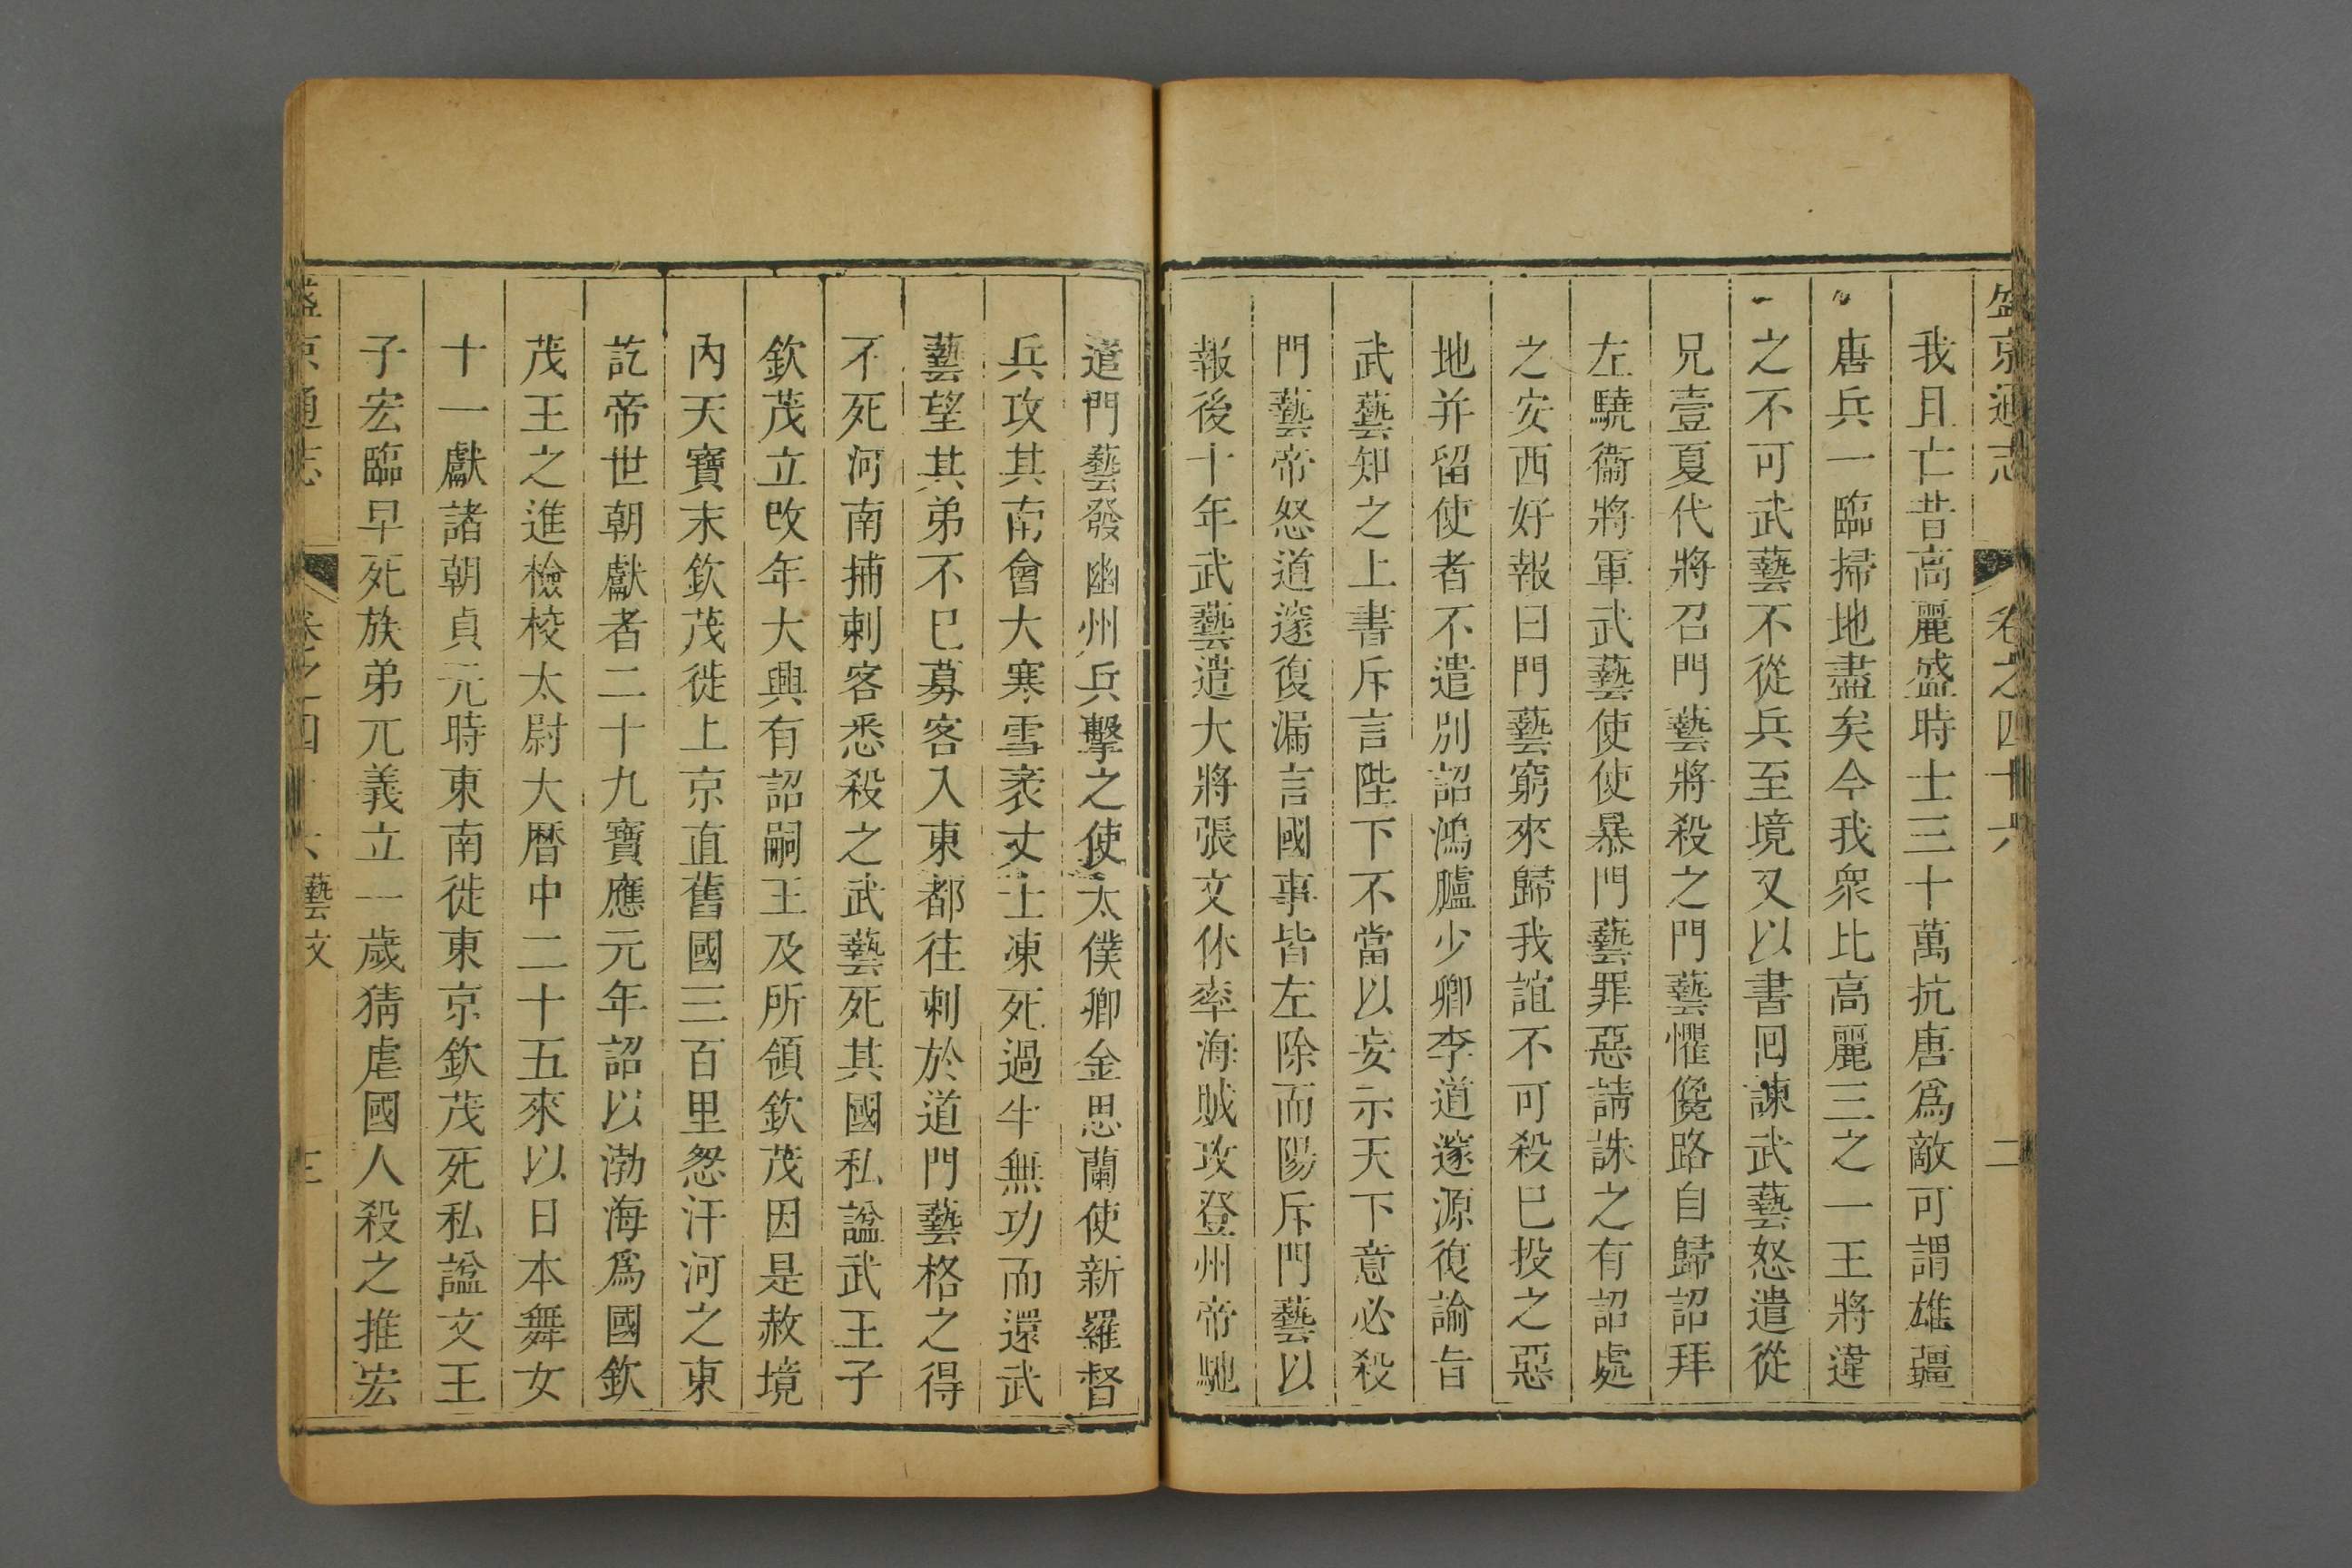 盛京通志 卷之四十六 二
我且亡昔高麗盛時士三十萬抗唐爲敵可謂雄疆
唐兵一臨掃地盡矣今我衆比高麗三之一王將違
之不可武藝不從兵至境又以書囘諫武藝怒遣從
兄壹夏代將召門藝將殺之門藝懼儳路自歸詔拜
左驍衞將軍武藝使使暴門藝罪惡請誅之有詔處
之安西好報曰門藝窮來歸我誼不可殺巳投之惡
地并留使者不遣別詔鴻臚少卿李道邃源復諭旨
武藝知之上書斥言陛下不當以妄示天下意必殺
門藝帝怒道邃復漏言國事皆左除而陽斥門藝以
報後十年武藝遣大將張文休率海賊攻登州帝馳
遣門藝發幽州兵擊之使太僕卿金思蘭使新羅督
兵攻其南會大寒雪袤丈士凍死過半無功而還武
藝望其弟不巳募客入東都往刺於道門藝格之得
不死河南捕刺客悉殺之武藝死其國私諡武王子
欽茂立改年大興有詔嗣王及所領欽茂因是赦境
內天寶末欽茂徙上京直舊國三百里忽汗河之東
訖帝世朝獻者二十九寶應元年詔以渤海爲國欽
茂王之進檢校太尉大曆中二十五來以日本舞女
十一獻諸朝貞元時東南徙東京欽茂死私諡文王
子宏臨早死族弟兀義立一歲猜虐國人殺之推宏
盛京通志 卷之四十六 藝文 三